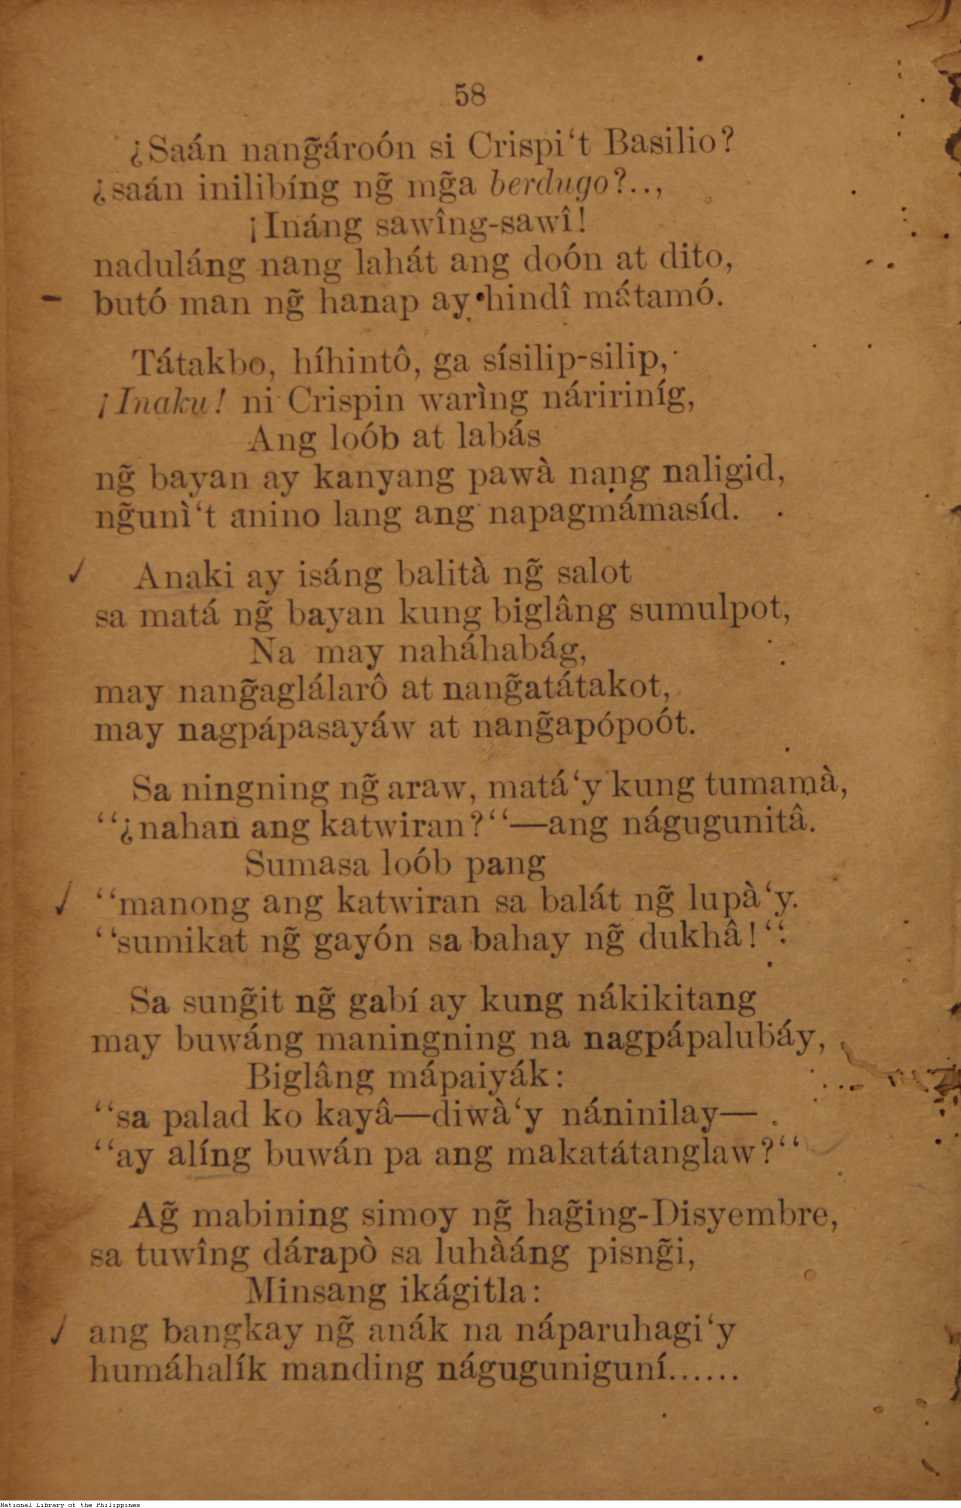 58
¿Saán nang̃ároón si Crispi‘t Basilio?
¿saán inilibíng ng̃ mg̃a berdugo?..,
¡Ináng sawîng-sawî!
naduláng nang lahát ang doón at dito,
butó man ng̃ hanap ay hindî mátamó.
Tátakbo, híhintô, ga sísilip-silip,
¡Inaku! ni Crispin warìng náririníg,
Ang loób at labás
ng̃ bayan ay kanyang pawà nang naligid,
ng̃unì‘t anino lang ang napagmámasíd.
Anaki ay isáng balità ng̃ salot
sa matá ng̃ bayan kung biglâng sumulpot,
Na may naháhabág,
may nang̃aglálarô at nang̃atátakot,
may nagpápasayáw at nang̃apópoót.
Sa ningning ng̃ araw, matá‘y kung tumamà,
‘‘¿nahan ang katwiran?‘‘—ang nágugunitâ.
Sumasa loób pang
‘‘manong ang katwiran sa balát ng̃ lupà‘y.
‘‘sumikat ng̃ gayón sa bahay ng̃ dukhâ!‘‘.
Sa sung̃it ng̃ gabí ay kung nákikitang
may buwáng maningning na nagpápalubáy,
Biglâng mápaiyák:
‘‘sa palad ko kayâ—diwà‘y náninilay—
‘‘ay alíng buwán pa ang makatátanglaw?‘‘
Ag̃ mabining simoy ng̃ hag̃ing-Disyembre,
sa tuwîng dárapò sa luhàáng pisng̃i,
Minsang ikágitla:
ang bangkay ng̃ anák na náparuhagi‘y
humáhalík manding náguguniguní......
National Library of the Philippines